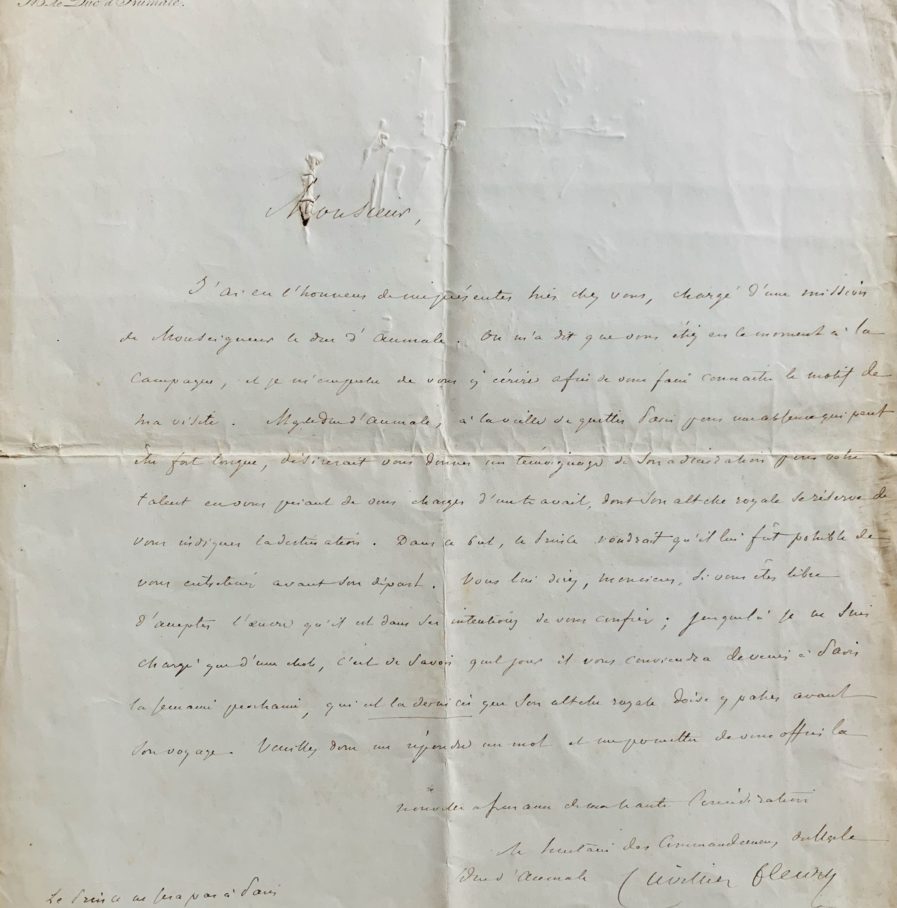 le Duc d'Aumale.
Monsieur,
J'ai eu l'honneur de me présenter hier chez vous, chargé d'une mission
de Monseigneur le duc d'Aumale. On m'a dit que vous étiez en ce moment à la
campagne, et je m'empresse de vous y écrire afin de vous faire connaître le motif de
ma visite. Mgr le Duc d'Aumale, à la veille de quitter Paris pour une absence qui peut
être fort longue, désirerait vous donner un témoignage de son admiration pour votre
talent en vous priant de vous charger d'un travail, dont son altesse royale se réserve de
vous indiquer la destination. Dans ce but, le Prince voudrait qu'il lui fût possible de
vous entretenir avant son départ. Vous lui direz, monsieur, si vous êtes libre
d'accepter l'œuvre qu'il est dans ses intentions de vous confier ; jusques là je ne suis
chargé que d'une chose, c'est de savoir quel jour il vous conviendra de venir à Paris
la semaine prochaine, qui est la dernière que son altesse royale doive y passer avant
son voyage. Veuillez donc me répondre un mot et me permettre de vous offrir la
nouvelle assurance de ma haute considération
Le Secrétaire des Commandemens de Mgr le
Duc d'Aumale Cuvillier Fleury
Le Prince ne sera pas à Paris